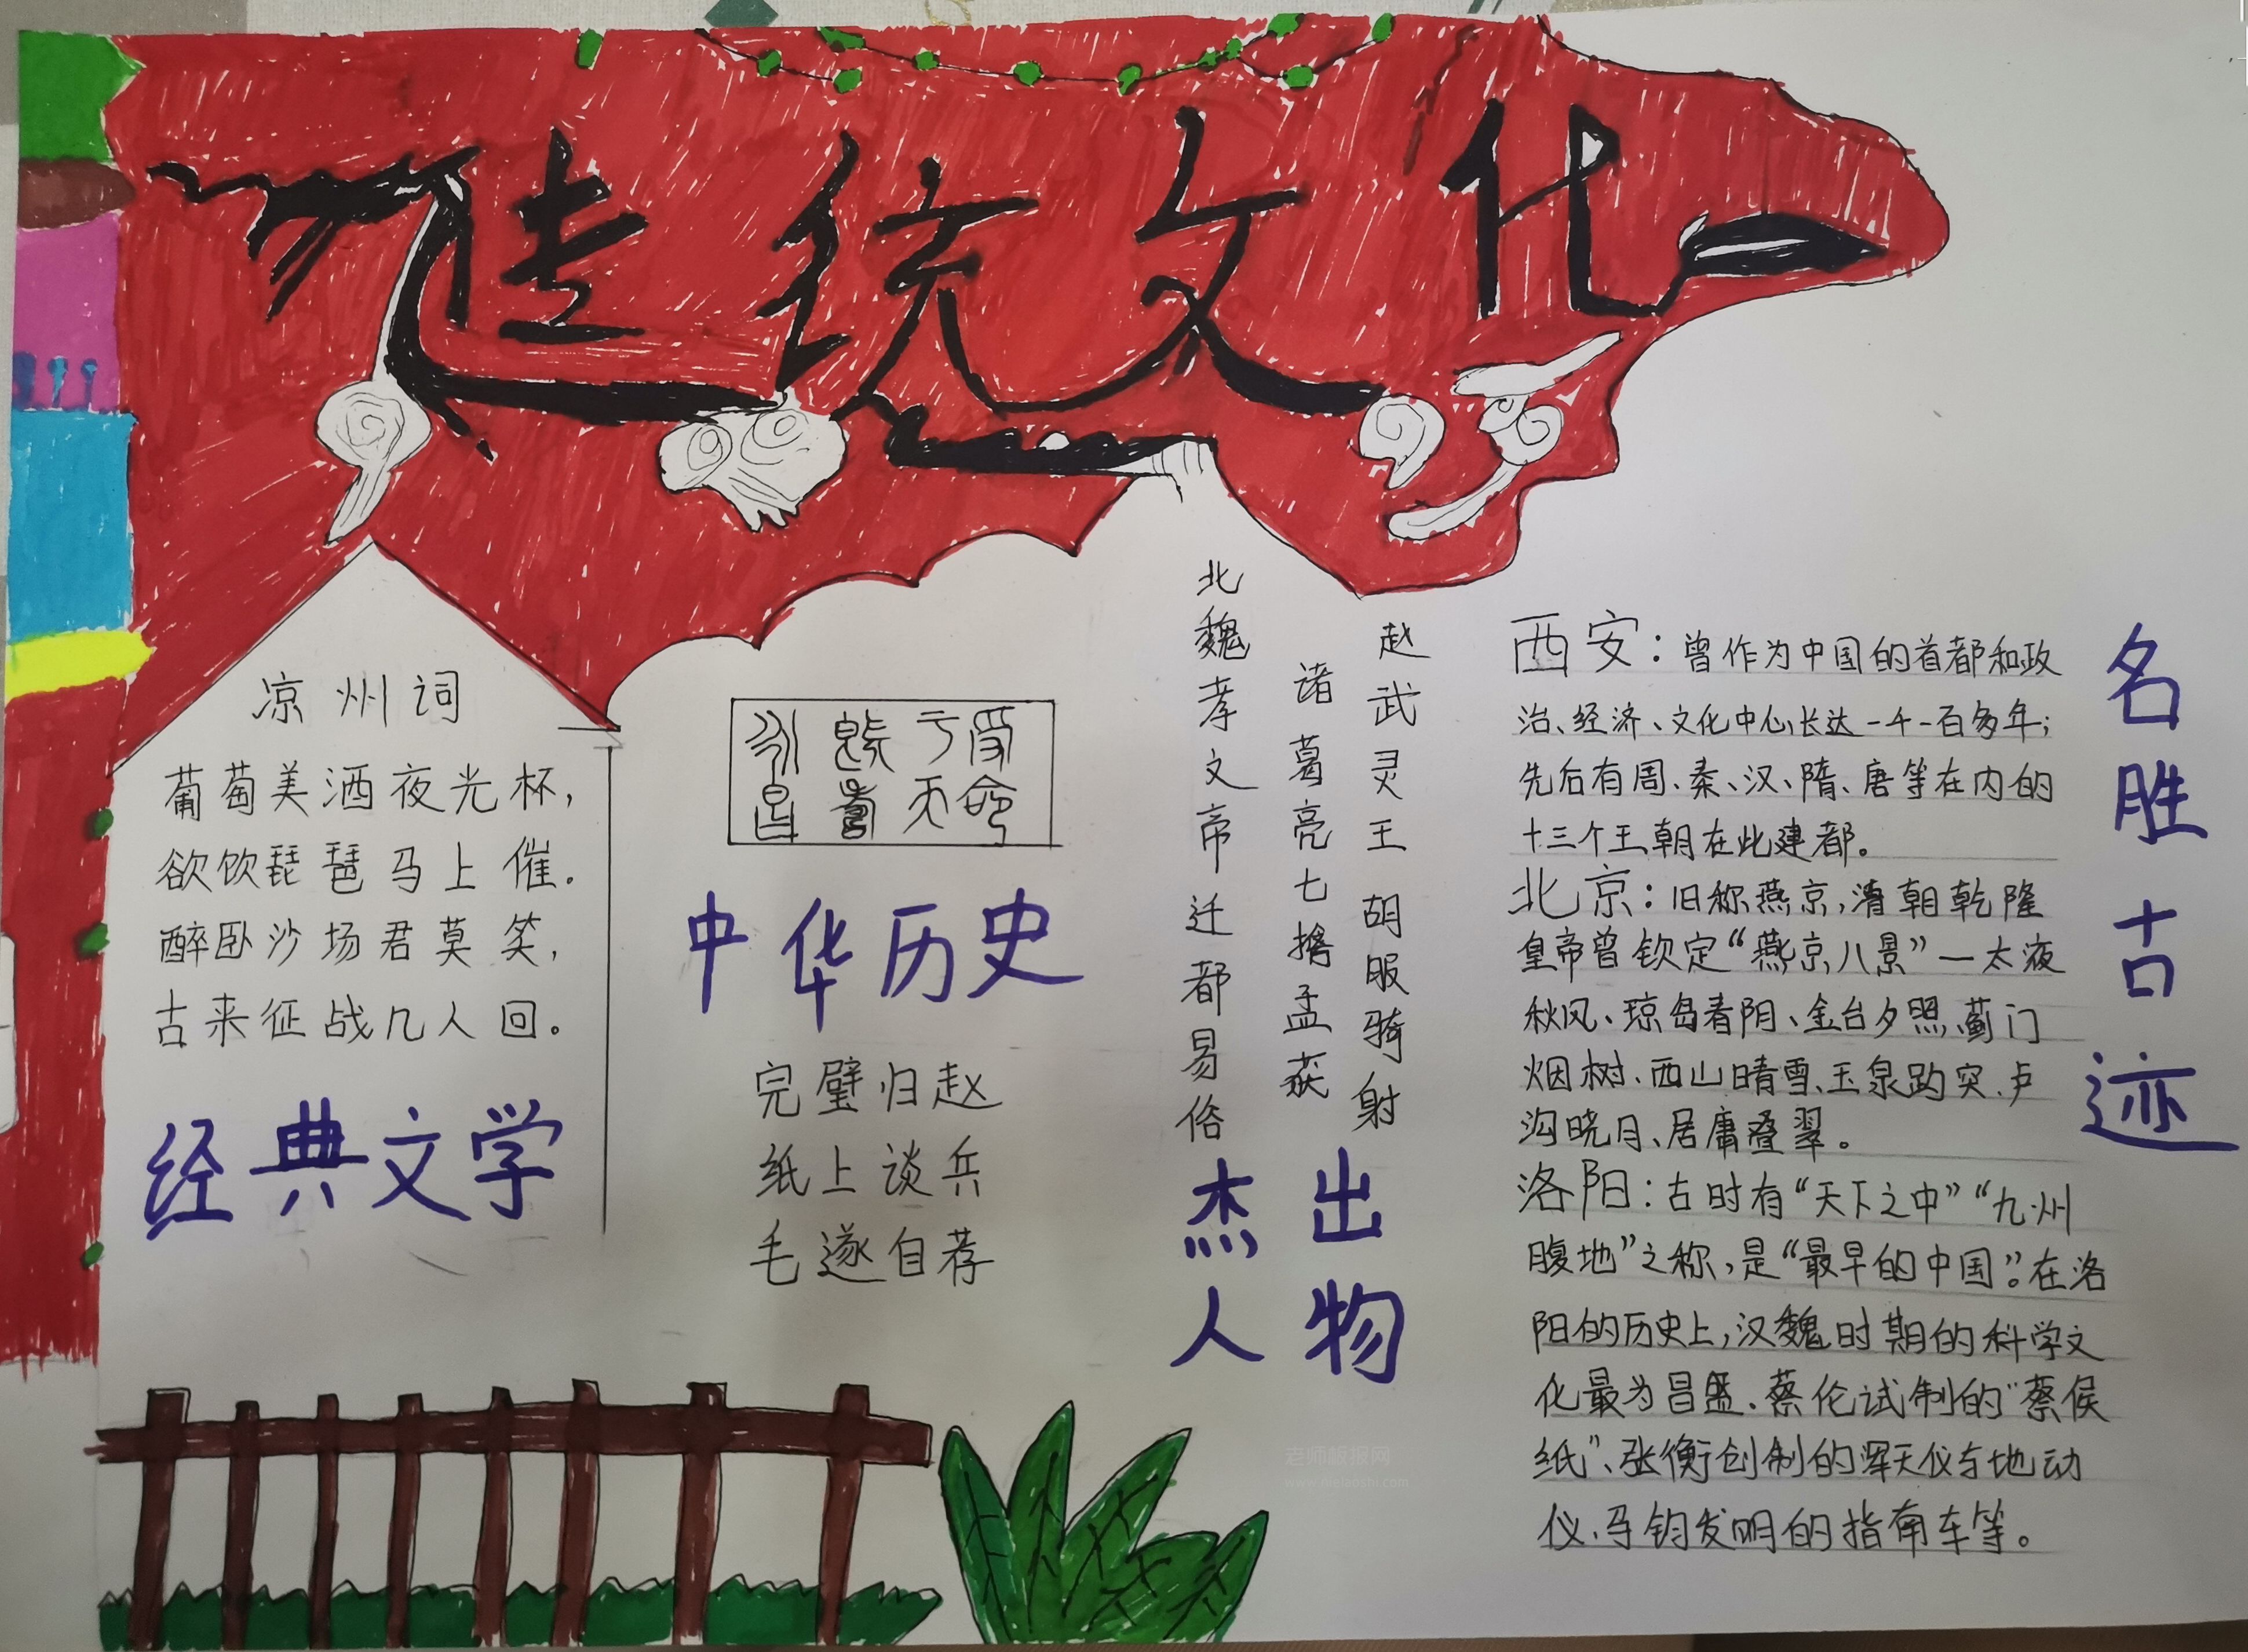 传统文化
凉州词
葡萄美酒夜光杯，
欲饮琵琶马上催。
醉卧沙场君莫笑，
古来征战几人回。
经典文学
受命
于天
既寿
永昌
中华历史
完璧归赵
纸上谈兵
毛遂自荐
北魏孝文帝迁都易俗
诸葛亮七擒孟获
赵武灵王胡服骑射
杰出
人物
名胜古迹
西安：曾作为中国的首都和政
治、经济、文化中心长达一千一百多年；
先后有周、秦、汉、隋、唐等在内的
十三个王朝在此建都。
北京：旧称燕京，清朝乾隆
皇帝曾钦定“燕京八景”—太液
秋风、琼岛春阴、金台夕照、蓟门
烟树、西山晴雪、玉泉趵突、卢
沟晓月、居庸叠翠。
洛阳：古时有“天下之中”“九州
腹地”之称，是“最早的中国”。在洛
阳的历史上，汉魏时期的科学文
化最为昌盛、蔡伦试制的“蔡侯
纸”、张衡创制的浑天仪与地动
仪、马钧发明的指南车等。
老师板报网